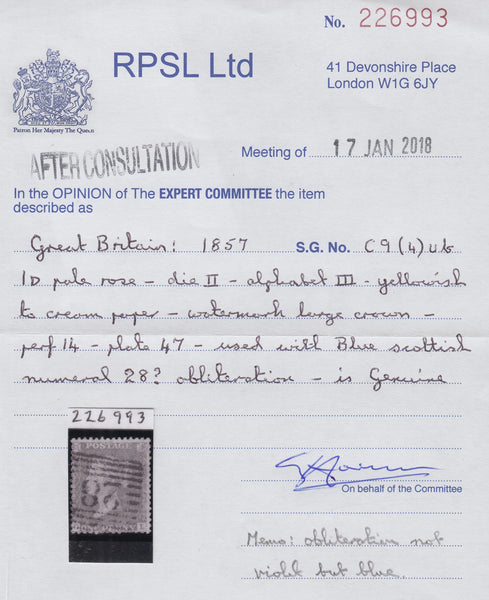 No. 226993
RPSL Ltd
41 Devonshire Place
London W1G 6JY
Patron Her Majesty The Queen
AFTER CONSULTATION
Meeting of 17 JAN 2018
In the OPINION of The EXPERT COMMITTEE the item
described as
Great Britain: 1857 S.G. No. C9(4)ub
1D pale rose - die II - alphabet III - yellowish
to cream paper - watermark large crown -
perf 14 - plate 47 - used with Blue scottish
numeral 28? obliteration - is Genuine
226993
POSTAGE
28
ONE PENNY
On behalf of the Committee
Memo: obliteration not
violet but blue.